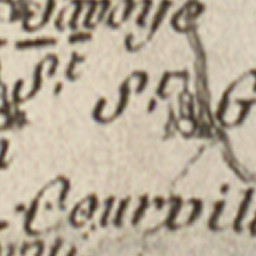 Savoye
S.t
S.r G
Courvill